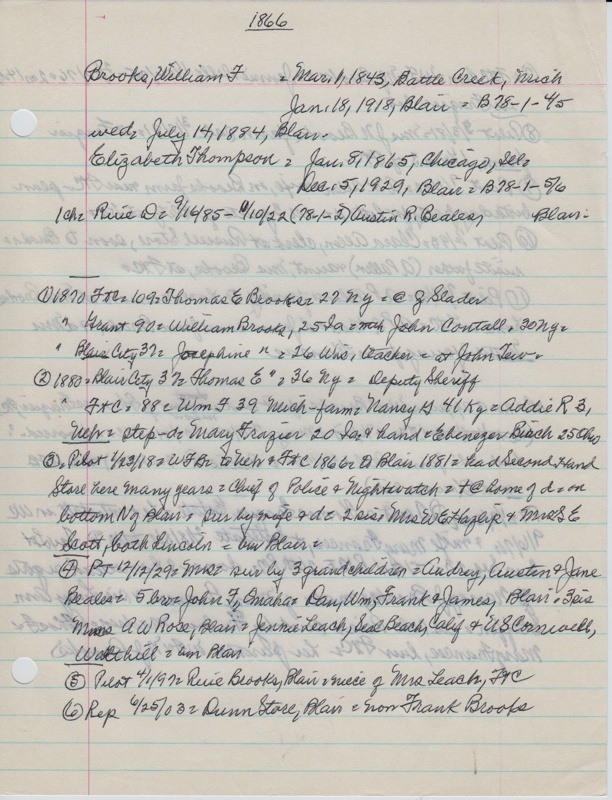 1866
Brooks, William F = Mar. 1, 1843, Battle Creek, Mich
Jan. 18, 1918, Blair = B78-1-45
wed = July 14, 1884, Blair.
Elizabeth Thompson = Jan. 8, 1865, Chicago, Ill =
Dec. 5, 1929, Blair = B78-1-5/6
1 ch = Rivie D = 9/16/85 - 11/10/22 (78-1-2) Austin R. Beales, Blair.
(1) 1870 FtC = 109 = Thomas E Brooks = 27 Ny = @ J Slader
" Grant 90 = William Brooks, 25 Ia = with John Contall = 30 Ny =
" Blair City 37 = Josephine " = 26 Wis, teacher = at John Tew =
(2) 1880 = Blair City 37 = Thomas E " = 36 Ny = Deputy Sheriff
" FtC = 88 = Wm F 39 Mich - farm = Nancy H 41 Ky = Addie R 3,
Nebr = step-d = Mary Frazier 20 Ia = & hand = Ebenezer Birch 25 Oho
(3) = Pilot 1/23/18 = W F Br to Nebr & FtC 1866 = to Blair 1881 = had Second Hand
Store here many years = Chief of Police & Nightwatch = + @ home of d = on
bottom N of Blair = sur by wife & d = 2 sis = Mrs W E Hazlip & Mrs S E
Scott, both Lincoln = bur Blair =
(4) PT 12/12/29 = Mrs = sur by 3 grandchildren = Audrey, Austin & Jane
Beales = 5 bro = John F, Omaha = Dan, Wm, Frank & James, Blair = 3 sis
Mmes A W Rose, Blair = Jennie Leach, Seal Beach, Calif & U S Cornwell,
Walthill = bur Blair
(5) Pilot 4/1/97 = Rivie Brooks, Blair = niece of Mrs Leach, FtC
(6) Rep 6/25/03 = Dunn Store, Blair = now Frank Brooks